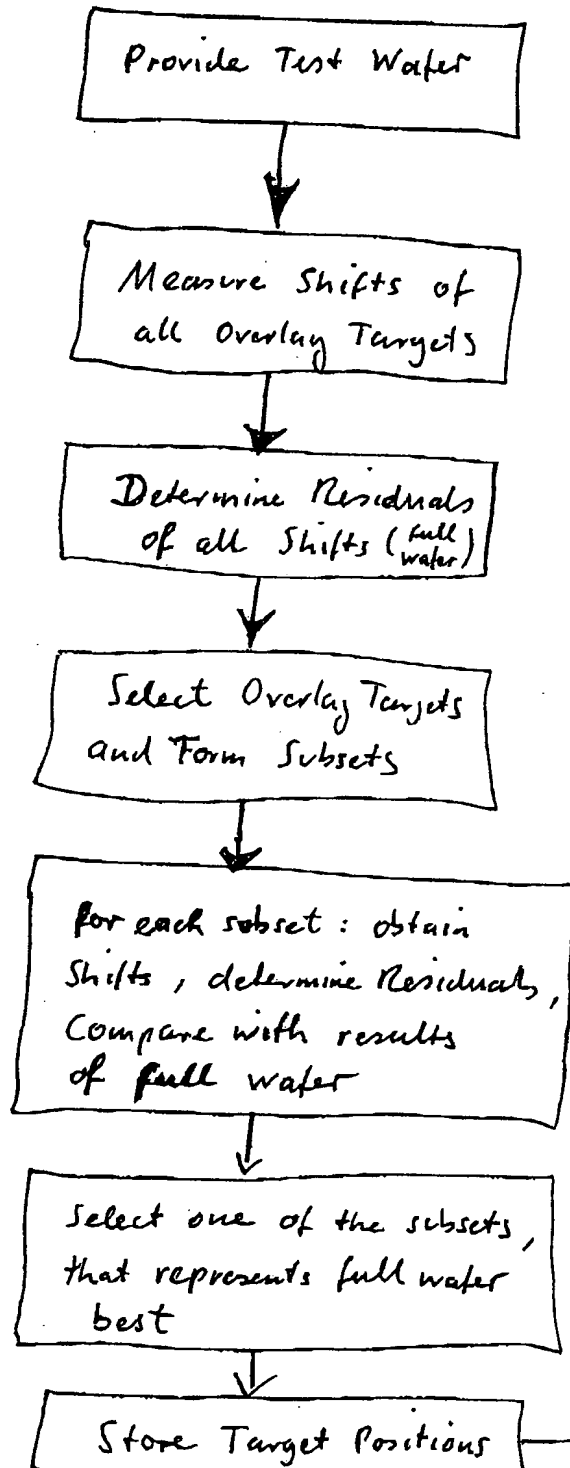 Provide Test Wafer
Measure Shifts of
all Overlay Targets
Determine Residuals
of all Shifts (full
wafer)
Select Overlay Targets
and Form Subsets
for each subset : obtain
Shifts, determine Residuals,
Compare with results
of full wafer
Select one of the subsets,
that represents full wafer
best
Store Target Positions